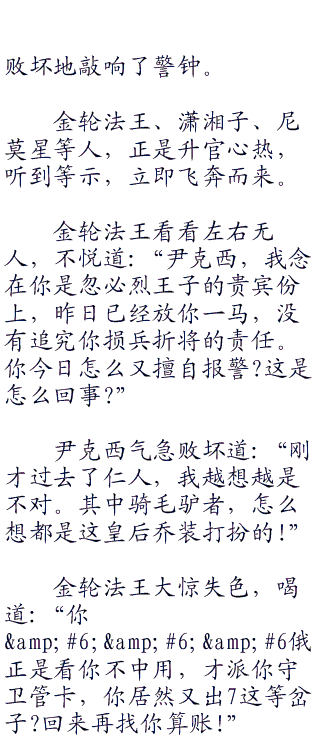 败坏地敲响了警钟。
金轮法王、潇湘子、尼
莫星等人，正是升官心热，
听到等示，立即飞奔而来。
金轮法王看看左右无
人，不悦道：“尹克西，我念
在你是忽必烈王子的贵宾份
上，昨日已经放你一马，没
有追究你损兵折将的责任。
你今日怎么又擅自报警?这是
怎么回事?”
尹克西气急败坏道：“刚
才过去了仨人，我越想越是
不对。其中骑毛驴者，怎么
想都是这皇后乔装打扮的!”
金轮法王大惊失色，喝
道：“你
&amp; #6; &amp; #6; &amp; #6俄
正是看你不中用，才派你守
卫管卡，你居然又出7这等岔
子?回来再找你算账!”